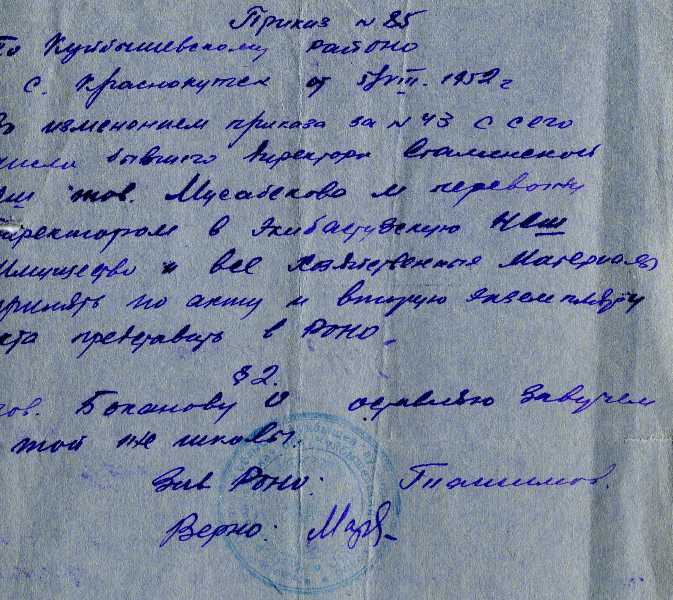 Приказ № 85
По Куйбышевскому районо
с. Краснокутск от 5/VIII. 1952 г
изменением приказа за № 43 с сего
числа бывшего директора Сталинской
тов. Мусабекова м перевожу
директором в Экибастузскую НСШ
Имущество и все хозяйственные материалы
принять по акту и вторую экземпляру
акта представить в РОНО.
§ 2.
тов. Боканову О оставляю завучем
той же школы.
Зав РОНО: Ташимов.
Верно: